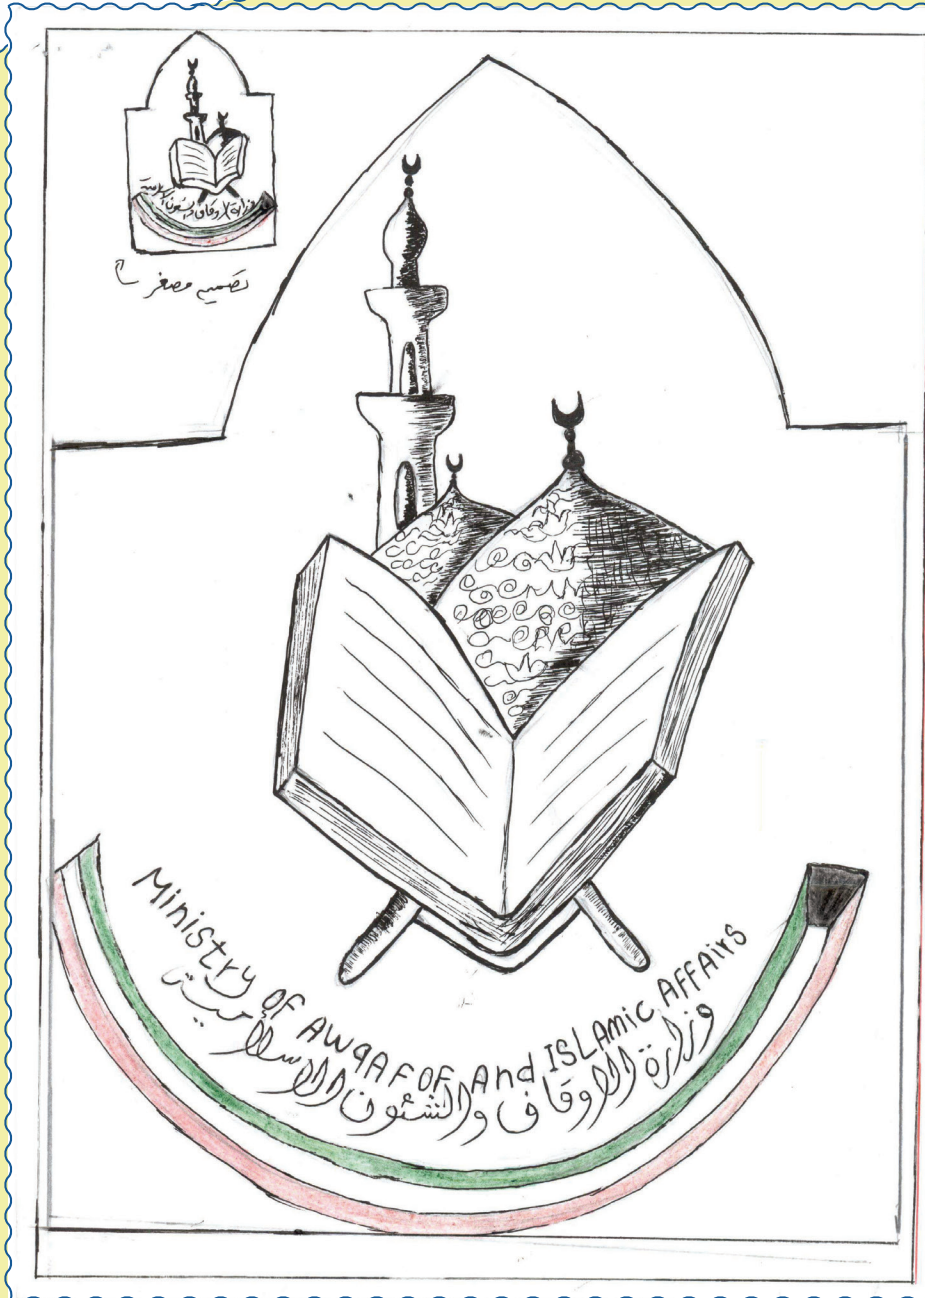 وزارة الاوقاف والشئون الاسلامية
تصميم مصغر
Ministry OF AWQAF OF And ISLAmic AFFAirs
وزارة الاوقاف والشئون الاسلامية